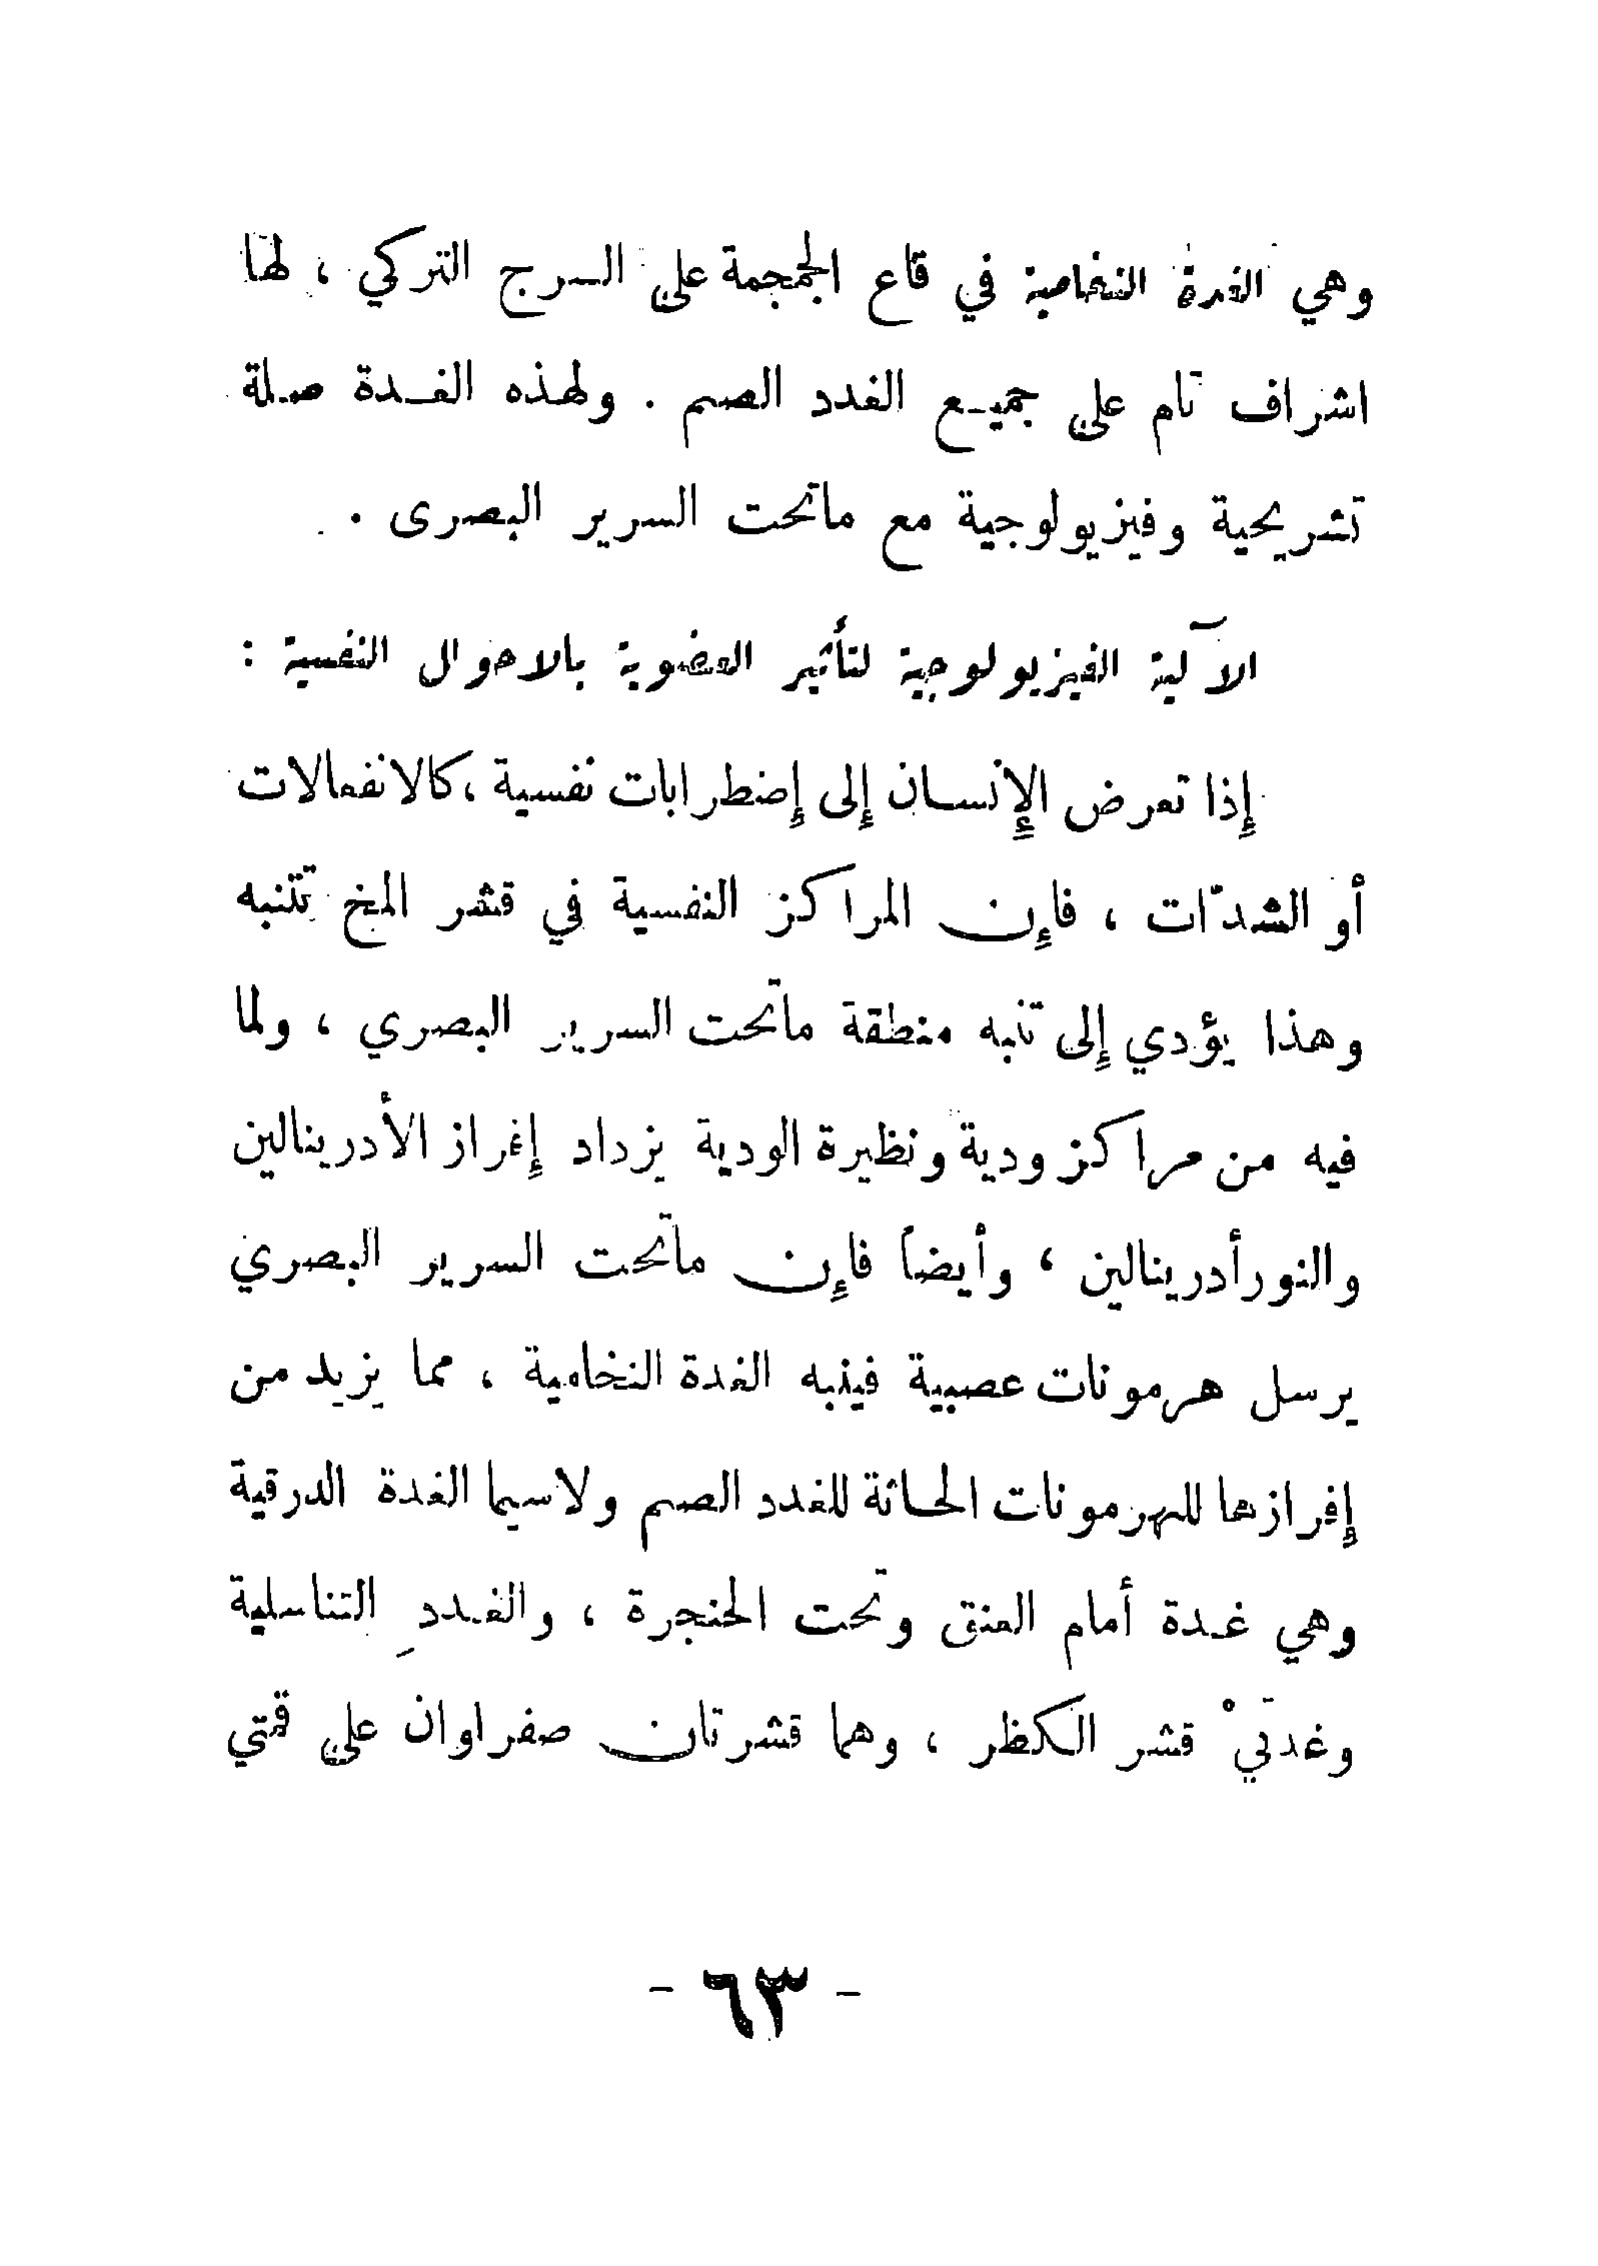 وهي الغدة النخامية في قاع الجمجمة على السرج التركي ، لها
اشراف تام على جميع الغدد الصم . ولهذه الغدة صلة
تشريحية وفيزيولوجية مع ماتحت السرير البصرى .
الآلية الفيزيولوجية لتأثير العضوية بالاحوال النفسية :
إذا تعرض الإنسان إلى إضطرابات نفسية ، كالانفعالات
أو الشدّات ، فإن المراكز النفسية في قشر المخ تتنبه
وهذا يؤدي إلى تنبه منطقة ماتحت السرير البصري ، ولما
فيه من مراكز ودية ونظيرة الودية يزداد إفراز الأدرينالين
والنورأدرينالين ، وأيضاً فإن ماتحت السرير البصري
يرسل هرمونات عصبية فينبه الغدة النخامية ، مما يزيد من
إفرازها للهرمونات الحاثة للغدد الصم ولاسيما الغدة الدرقية
وهي غدة أمام العنق وتحت الحنجرة ، والغددِ التناسلية
وغدتيْ قشر الكظر ، وهما قشرتان صفراوان على قمتي
- ٦٣ -